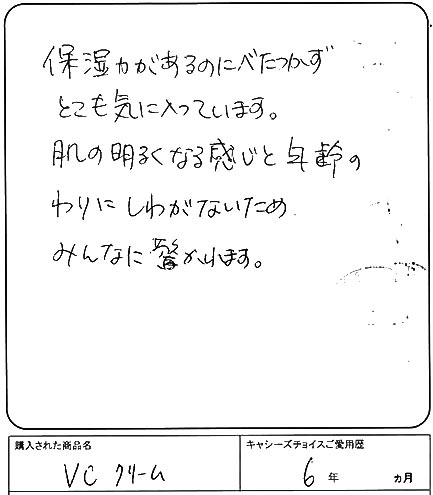 保湿力があるのにべたつかず
とても気に入っています。
肌の明るくなる感じと年齢の
わりにしわがないため
みんなに驚かれます。
購入された商品名
キャシーズチョイスご愛用歴
VC クリーム
6年 ヵ月